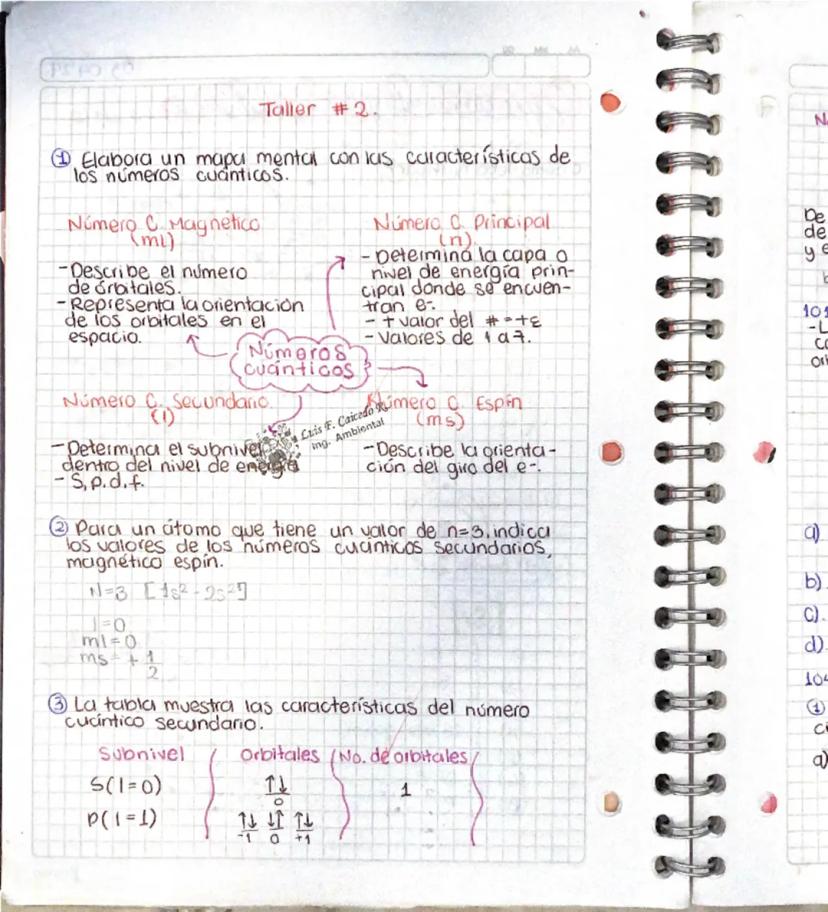 Taller # 2.
① Elabora un mapa mental con las características de
los números cuánticos.
Número C. Magnético
(ml)
-Describe el número
de orbitales.
-Representa la orientación
de los orbitales en el
espacio.
Número C. Principal
(n)
-Determina la capa o
nivel de energía prin-
cipal donde se encuen-
tran e-.
- + valor del # = +E
- Valores de 1 a 7.
Números
cuánticos
Número C. Secundario
(l)
-Determina el subnivel
dentro del nivel de energía
- S, p, d, f.
Luis F. Caicedo R.
Ing. Ambiental
Número C. Espín
(ms)
-Describe la orienta-
ción del giro del e-.
② Para un átomo que tiene un valor de n=3, indica
los valores de los números cuánticos secundarios,
magnético espín.
N=3 [1s² - 2s²]
l=0
ml=0
ms= + 1/2
③ La tabla muestra las características del número
cuántico secundario.
Subnivel Orbitales No. de orbitales
S(l=0) ↑↓ 1
0
P(l=1) ↑↓ ↓↑ ↑↓
-1 0 +1
De
de
y e
101
-L
a)
b)
c).
d)
104
①
a)